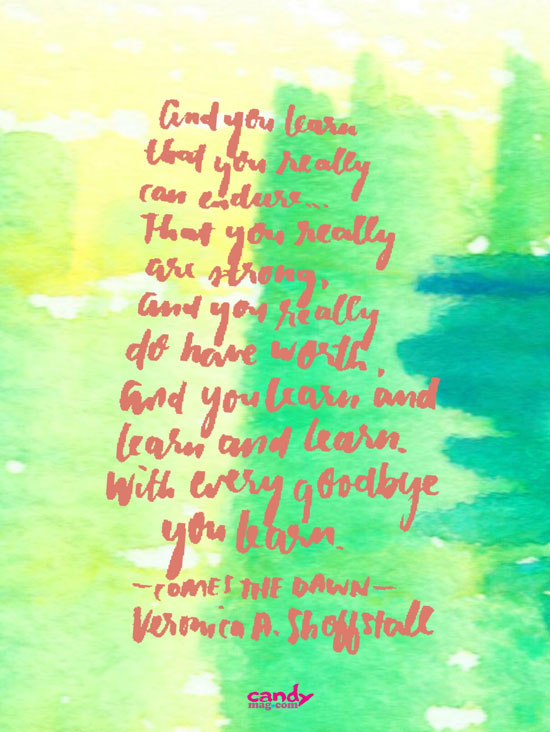 And you learn
that you really
can endure...
That you really
are strong,
and you really
do have worth,
And you learn and
learn and learn.
With every goodbye
you learn.
—COMES THE DAWN—
Veronica A. Shoffstall
candy
mag.com